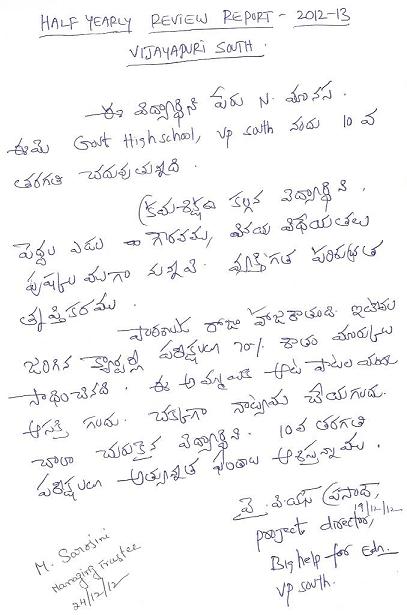 HALF YEARLY REVIEW REPORT - 2012-13
VIJAYAPURI SOUTH.
ఈ విద్యార్థిని పేరు N. మానస.
ఈమె Govt High school, VP South నందు 10 వ
తరగతి చదువుతున్నది.
క్రమశిక్షణ కల్గిన విద్యార్థిని.
పెద్దల ఎడల గౌరవము, వినయ విధేయతలు
పుష్కలముగా ఉన్నవి. వ్యక్తిగత పరిశుభ్రత
తృప్తికరము.
పాఠశాలకు రోజు హాజరౌతుంది. ఇటీవల
జరిగిన క్వార్టర్లీ పరీక్షలలో 70% శాతం మార్కులు
సాధించినది. ఈ అమ్మాయికి ఆట పాటల యందు
ఆసక్తి గలదు. చక్కగా నాట్యము చేయగలదు.
చాలా చురుకైన విద్యార్థిని. 10వ తరగతి
పరీక్షలలో అత్యున్నత ఫలితాలు ఆశిస్తున్నాము.
వై. ప్రసాద్,
19/12/12
project director,
Big help for Edn.
VP South.
M. Sarojini
Managing Trustee
24/12/12